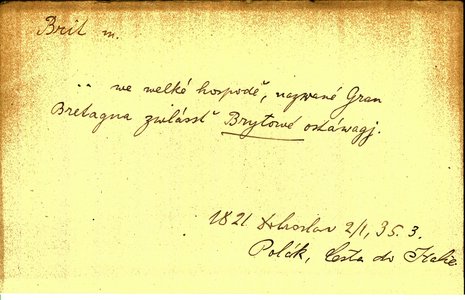 Brit m.
.. we welké hospodě, nazwané Gran
Bretagna zwlásstě Brytowé ostáwagj.
1821 Dobroslaw 2/1, 35. 3.
Polák, Cesta do Italie